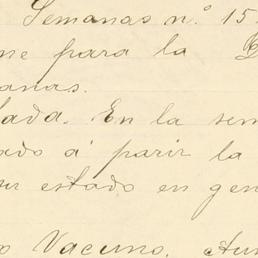 Semanas n.° 15
me para la
anas.
lada. En la sem
ado á parir la
ur estado en gen
o Vacuno. Aun